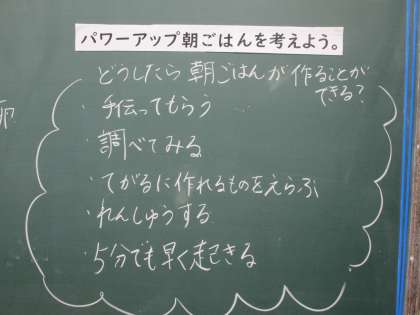 パワーアップ朝ごはんを考えよう。
どうしたら朝ごはんが作ることが
できる?
・手伝ってもらう
・調べてみる
・てがるに作れるものをえらぶ
・れんしゅうする
・5分でも早く起きる